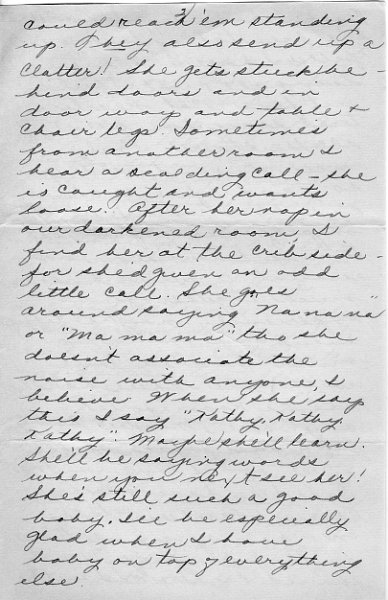 2
could reach 'em standing
up. They also send up a
clatter! She gets stuck be-
hind doors and in
door way and table +
chair legs. Sometimes
from another room I
hear a scolding call - she
is caught and wants
loose. After her nap in
our darkened room, I
find her at the crib side -
for she'd given an odd
little call. She goes
around saying "Na na na"
or "Ma ma ma" tho she
doesn't associate the
noise with anyone, I
believe. When she says
this I say "Kathy, Kathy
Kathy". Maybe she'll learn.
She'll be saying words
when you next see her!
She's still such a good
baby. I'll be especially
glad when I have
baby on top of everything
else.